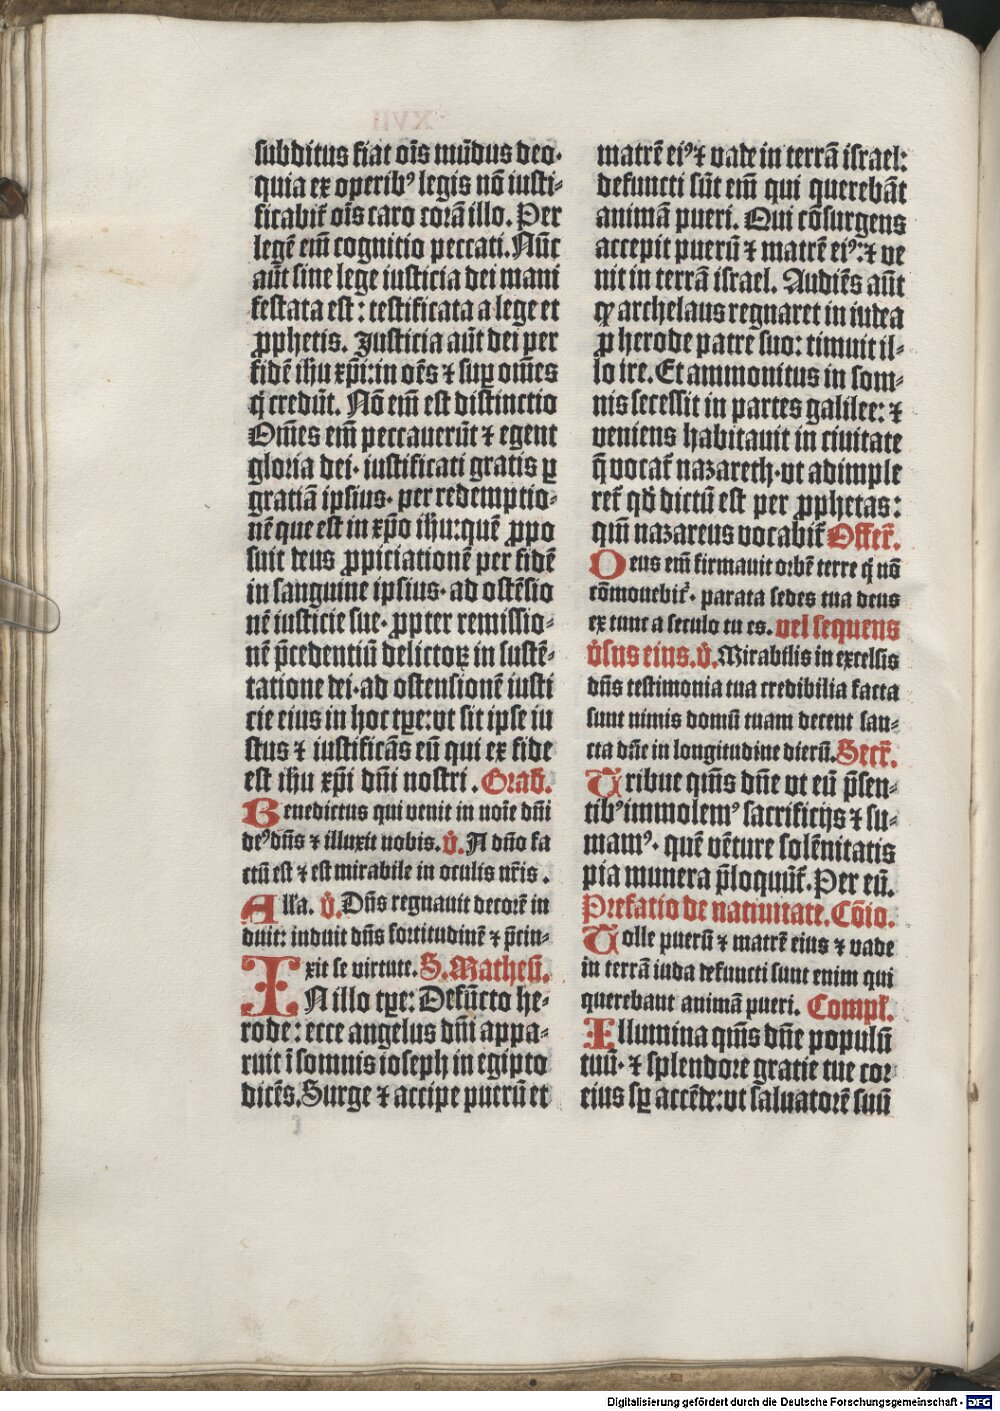 subditus fiat oīs mūdus deo.
quia ex operibꝰ legis nō iusti-
ficabit̄ oīs caro corā illo. Per
legē em̄ cognitio peccati. Nūc
aūt sine lege iusticia dei mani
festata est: testificata a lege et
ꝓphetis. Iusticia aūt dei per
fidē ihu xp̄i: in oēs ⁊ suꝑ om̄es
q̄ credūt. Nō em̄ est distinctio
Om̄es em̄ peccauerūt ⁊ egent
gloria dei. iustificati gratis ꝑ
gratiā ipsius. per redemptio-
nē que est in xp̄o ihu: quē ꝓpo
suit deus ꝓpiciationē per fidē
in sanguine ipsius. ad ostēsio
nē iusticie sue. ꝓpter remissio-
nē p̄cedentiū delictoꝝ in sustē-
tatione dei. ad ostensionē iusti
cie eius in hoc tꝑe: vt sit ipse iu
stus ⁊ iustificās eū qui ex fide
est ihu xp̄i dn̄i nostri. Grad̄.
Benedictus qui venit in noīe dn̄i
deꝰ dn̄s ⁊ illuxit nobis. v̄. A dn̄o fa
ctū est ⁊ est mirabile in oculis nr̄is.
Alla. v̄. Dn̄s regnauit decorē in
duit: induit dn̄s fortitudinē ⁊ p̄cin-
xit se virtute. S. Matheū.
IN illo tꝑe: Defūcto he-
rode: ecce angelus dn̄i appa-
ruit ī somnis ioseph in egipto
dicēs. Surge ⁊ accipe puerū et
matrē eiꝰ ⁊ vade in terrā israel:
defuncti sūt em̄ qui querebāt
animā pueri. Qui cōsurgens
accepit puerū ⁊ matrē eiꝰ: ⁊ ve
nit in terrā israel. Audiēs aūt
ꝙ archelaus regnaret in iudea
ꝓ herode patre suo: timuit il-
lo ire. Et ammonitus in som-
nis secessit in partes galilee: ⁊
veniens habitauit in ciuitate
q̄ vocat̄ nazareth. vt adimple
ret̄ qd̄ dictū est per ꝓphetas:
qm̄ nazareus vocabit̄ Offer̄.
Deus em̄ firmauit orbē terre q̄ nō
cōmouebit̄. parata sedes tua deus
ex tunc a seculo tu es. vel sequens
v̄sus eius. v̄. Mirabilis in excelsis
dn̄s testimonia tua credibilia facta
sunt nimis domū tuam decent san-
cta dn̄e in longitudine dierū. Secr̄.
Tribue qm̄s dn̄e vt eū p̄sen-
tibꝰ immolemꝰ sacrificijs ⁊ su-
mamꝰ. quē vēture solēnitatis
pia munera p̄loquūt̄. Per eū.
Prefatio de natiuitate. Cōio.
Tolle puerū ⁊ matrē eius ⁊ vade
in terrā iuda defuncti sunt enim qui
querebant animā pueri. Compl̄.
Illumina qm̄s dn̄e populū
tuū. ⁊ splendore gratie tue cor
eius sꝑ accēde: vt saluatorē suū
Digitalisierung gefördert durch die Deutsche Forschungsgemeinschaft - DFG